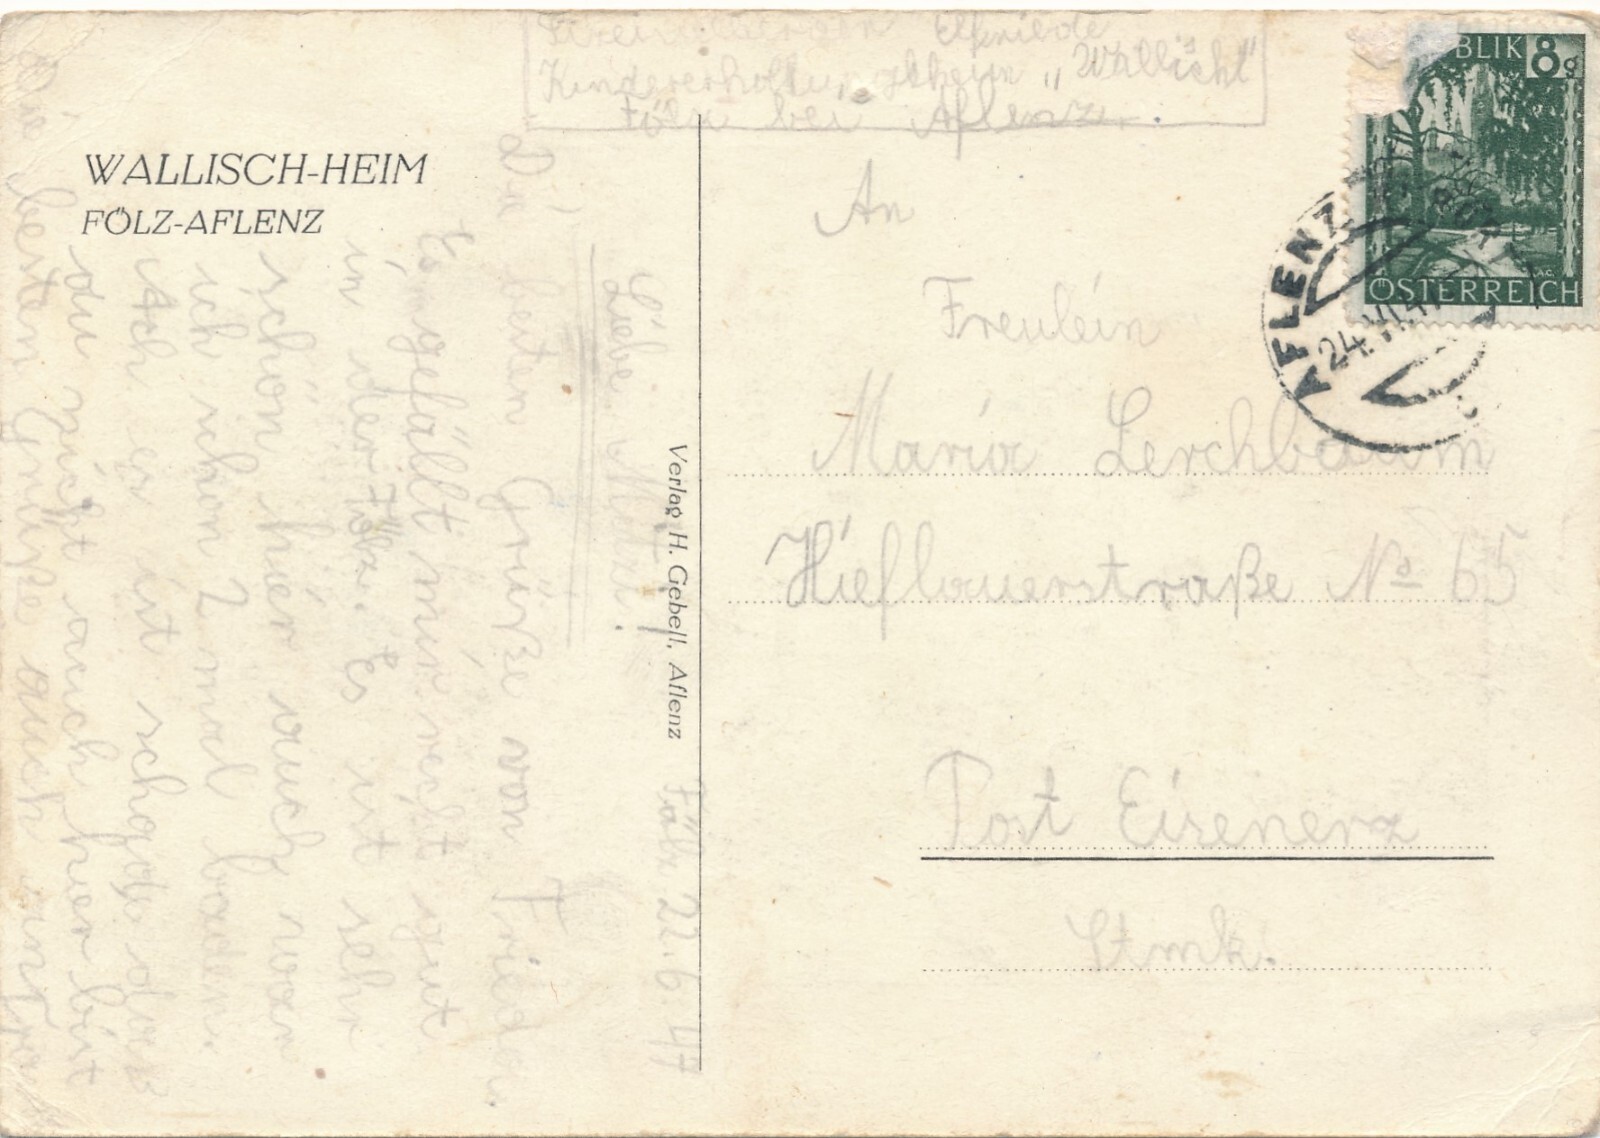 Elfriede
Kindererholungsheim „Wallisch"
Fölz bei Aflenz.
WALLISCH-HEIM
FÖLZ-AFLENZ
BLIK 8g
ÖSTERREICH
AFLENZ
24.VI.47
An
Freulein
Maria Lerchbaum
Hieflauerstraße No 65
Post Eisenerz
Stmk.
Verlag H. Gebell, Aflenz
Fölz 22.6.47
Liebe Mitzi!
Die besten Grüße von Frieda.
Es gefällt mir recht gut
in der Fölz. Es ist sehr
schön hier auch war
ich schon 2 mal baden.
Ach er ist schade das
du nicht auch hier bist
Die besten Grüße auch an